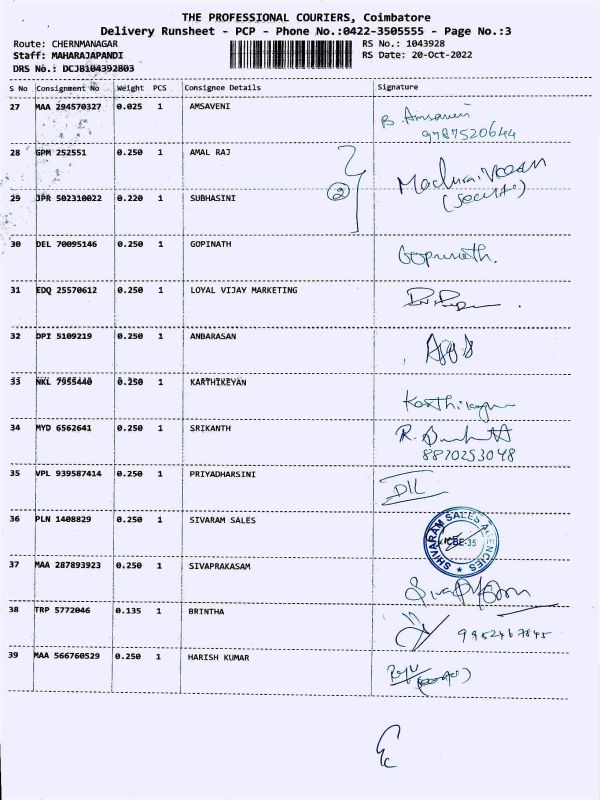 THE PROFESSIONAL COURIERS, Coimbatore
Delivery Runsheet - PCP - Phone No.:0422-3505555 - Page No.:3
Route: CHERNMANAGAR RS No.: 1043928
Staff: MAHARAJAPANDI RS Date: 20-Oct-2022
DRS No.: DCJB104392803
S No Consignment No Weight PCS Consignee Details Signature
27 MAA 294570327 0.025 1 AMSAVENI B. Amsaveni
9787520644
28 GPM 252551 0.250 1 AMAL RAJ
2
29 JPR 502310022 0.220 1 SUBHASINI
30 DEL 70095146 0.250 1 GOPINATH Gopinath.
31 EDQ 25570612 0.250 1 LOYAL VIJAY MARKETING
32 DPI 5109219 0.250 1 ANBARASAN
33 NKL 7955440 0.250 1 KARTHIKEYAN Karthikeyan
34 MYD 6562641 0.250 1 SRIKANTH R.
8870253048
35 VPL 939587414 0.250 1 PRIYADHARSINI
36 PLN 1408829 0.250 1 SIVARAM SALES SHIVARAM SALES AGENCIES
CBE-35
37 MAA 287893923 0.250 1 SIVAPRAKASAM
38 TRP 5772046 0.135 1 BRINTHA 9952467845
39 MAA 566760529 0.250 1 HARISH KUMAR